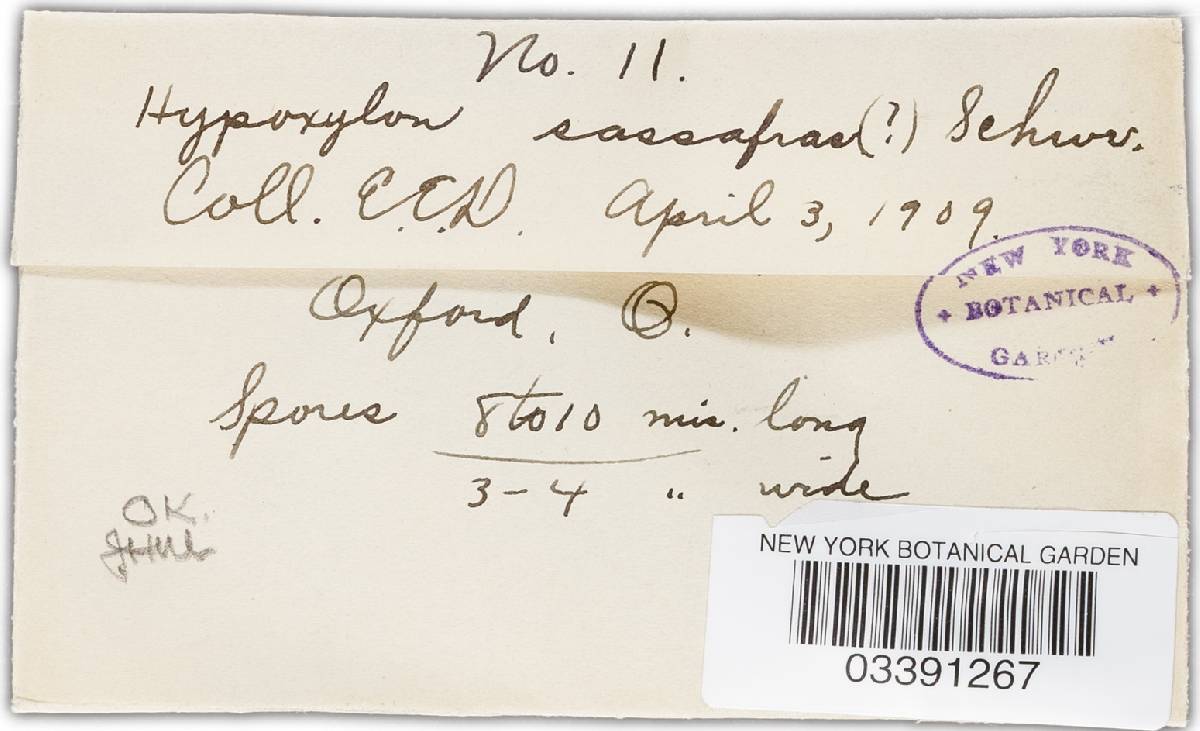 No. 11.
Hypoxylon sassafras (?) Schwv.
Coll. E.E.D. April 3, 1909.
NEW YORK
+ BOTANICAL +
GARDEN
Oxford, O.
Spores 8 to 10 mic. long
3-4 " wide
OK.
NEW YORK BOTANICAL GARDEN
03391267